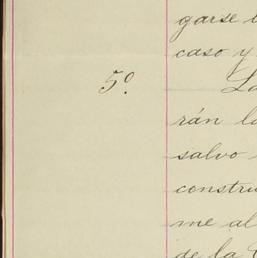 garse
caso y
5º.
La
rán
salvo
constru
me al
de la